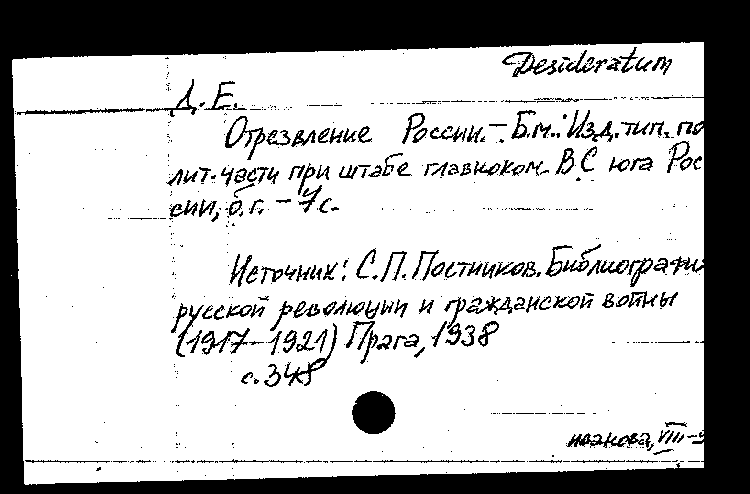 Desideratum
Д. Е.
Отрезвление России. – Б.м.: Изд. тип. по
лит. части при штабе главноком. В С юга Рос
сии, б.г. – 7 с.
Источник: С.П. Постников. Библиография
русской революции и гражданской войны
(1917–1921) Прага, 1938
с. 348
иванова, VIII-9